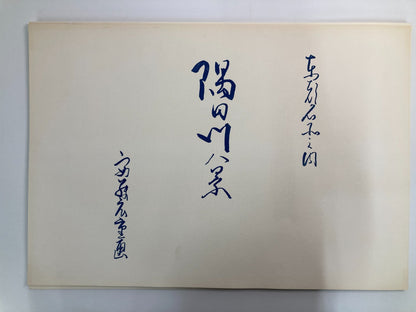 東都名所之内
隅田川八景
一立斎広重画